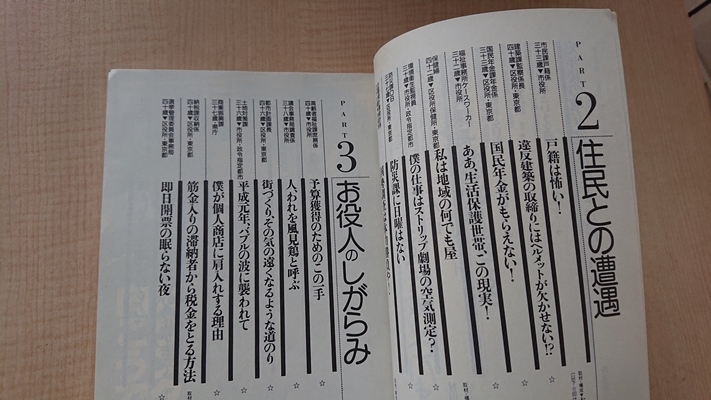 PART 2 住民との遭遇
市民課戸籍係
三十三歳▼市役所
戸籍は怖い!
建築課監察係長
四十歳▼区役所・東京都
違反建築の取締りにはヘルメットが欠かせない!?
国民年金課年金係
三十歳▼区役所・東京都
国民年金がもらえない!
福祉事務所ケースワーカー
三十二歳▼市役所
ああ、生活保護世帯、この現実!
保健婦
四十二歳▼区役所保健所・東京都
私は地域の何でも屋
環境衛生監視員
三十歳▼市役所・政令指定都市
僕の仕事はストリップ劇場の空気測定?
防災課に日曜はない
PART 3 お役人のしがらみ
高齢者福祉課庶務係
四十歳▼市役所
予算獲得のためのこの一手
☆
議会事務局調査係
三十八歳▼市役所
人、われを風見鶏と呼ぶ
☆
都市計画課長
四十六歳▼区役所・東京都
街づくり、その気の遠くなるような道のり
☆
土地対策課
三十歳▼市役所・政令指定都市
平成元年、バブルの波に襲われて
☆
商業振興課
三十七歳▼県庁
僕が個人商店に肩入れする理由
☆
納税課収納係
四十歳▼区役所・東京都
筋金入りの滞納者から税金をとる方法
☆
選挙管理委員会事務局
四十歳▼区役所・東京都
即日開票の眠らない夜
☆